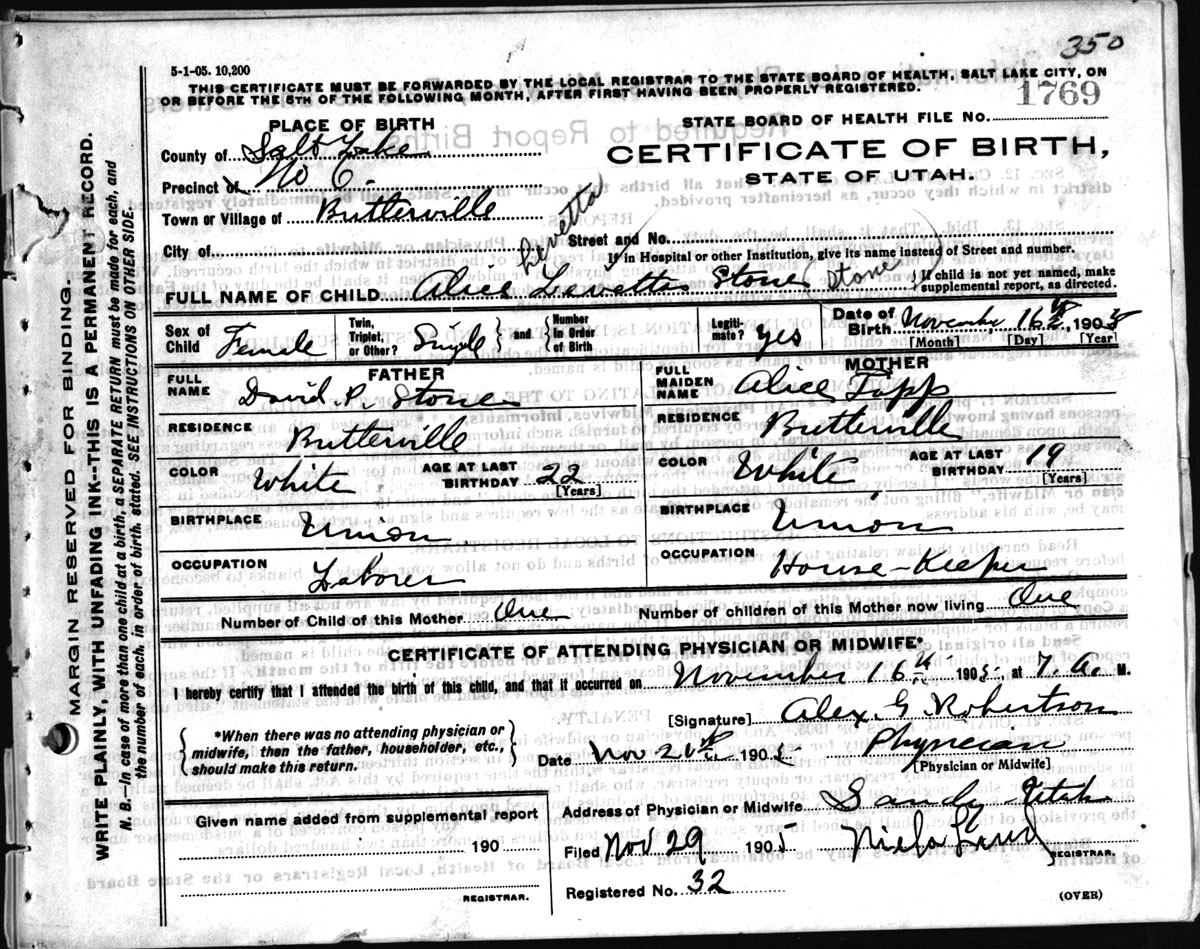 350
5-1-05. 10,200
THIS CERTIFICATE MUST BE FORWARDED BY THE LOCAL REGISTRAR TO THE STATE BOARD OF HEALTH, SALT LAKE CITY, ON
OR BEFORE THE 5TH OF THE FOLLOWING MONTH, AFTER FIRST HAVING BEEN PROPERLY REGISTERED.
1769
PLACE OF BIRTH
STATE BOARD OF HEALTH FILE No.
County of Salt Lake
CERTIFICATE OF BIRTH,
Precinct of No 6.
STATE OF UTAH.
Town or Village of Butterville
Levetta
City of
Street and No.
If in Hospital or other Institution, give its name instead of Street and number.
FULL NAME OF CHILD Alice Levetta Stone (Stone) { If child is not yet named, make
supplemental report, as directed.
Sex of Child Female
Twin, Triplet, or Other? Single } and { Number in Order of Birth
Legiti-mate? Yes
Date of Birth November 16th, 1905
[Month] [Day] [Year]
FATHER
MOTHER
FULL NAME David. P. Stone
FULL MAIDEN NAME Alice Tapp
RESIDENCE Butterville
RESIDENCE Butterville
COLOR White AGE AT LAST BIRTHDAY 22 [Years]
COLOR White AGE AT LAST BIRTHDAY 19 [Years]
BIRTHPLACE Union
BIRTHPLACE Union
OCCUPATION Laborer
OCCUPATION House-Keeper
Number of Child of this Mother One
Number of children of this Mother now living One
CERTIFICATE OF ATTENDING PHYSICIAN OR MIDWIFE*
I hereby certify that I attended the birth of this child, and that it occurred on November 16th 1905, at 7. A. M.
[Signature] Alex. G. Robertson
{ *When there was no attending physician or
midwife, then the father, householder, etc.,
should make this return. }
Date Nov 26th 1905 Physician
[Physician or Midwife]
Given name added from supplemental report
190
REGISTRAR.
Address of Physician or Midwife Sandy Utah
Filed Nov 29 1905
REGISTRAR.
Registered No. 32
(OVER)
MARGIN RESERVED FOR BINDING.
WRITE PLAINLY, WITH UNFADING INK--THIS IS A PERMANENT RECORD.
N. B.—In case of more than one child at a birth, a SEPARATE RETURN must be made for each, and
the number of each, in order of birth, stated. SEE INSTRUCTIONS ON OTHER SIDE.